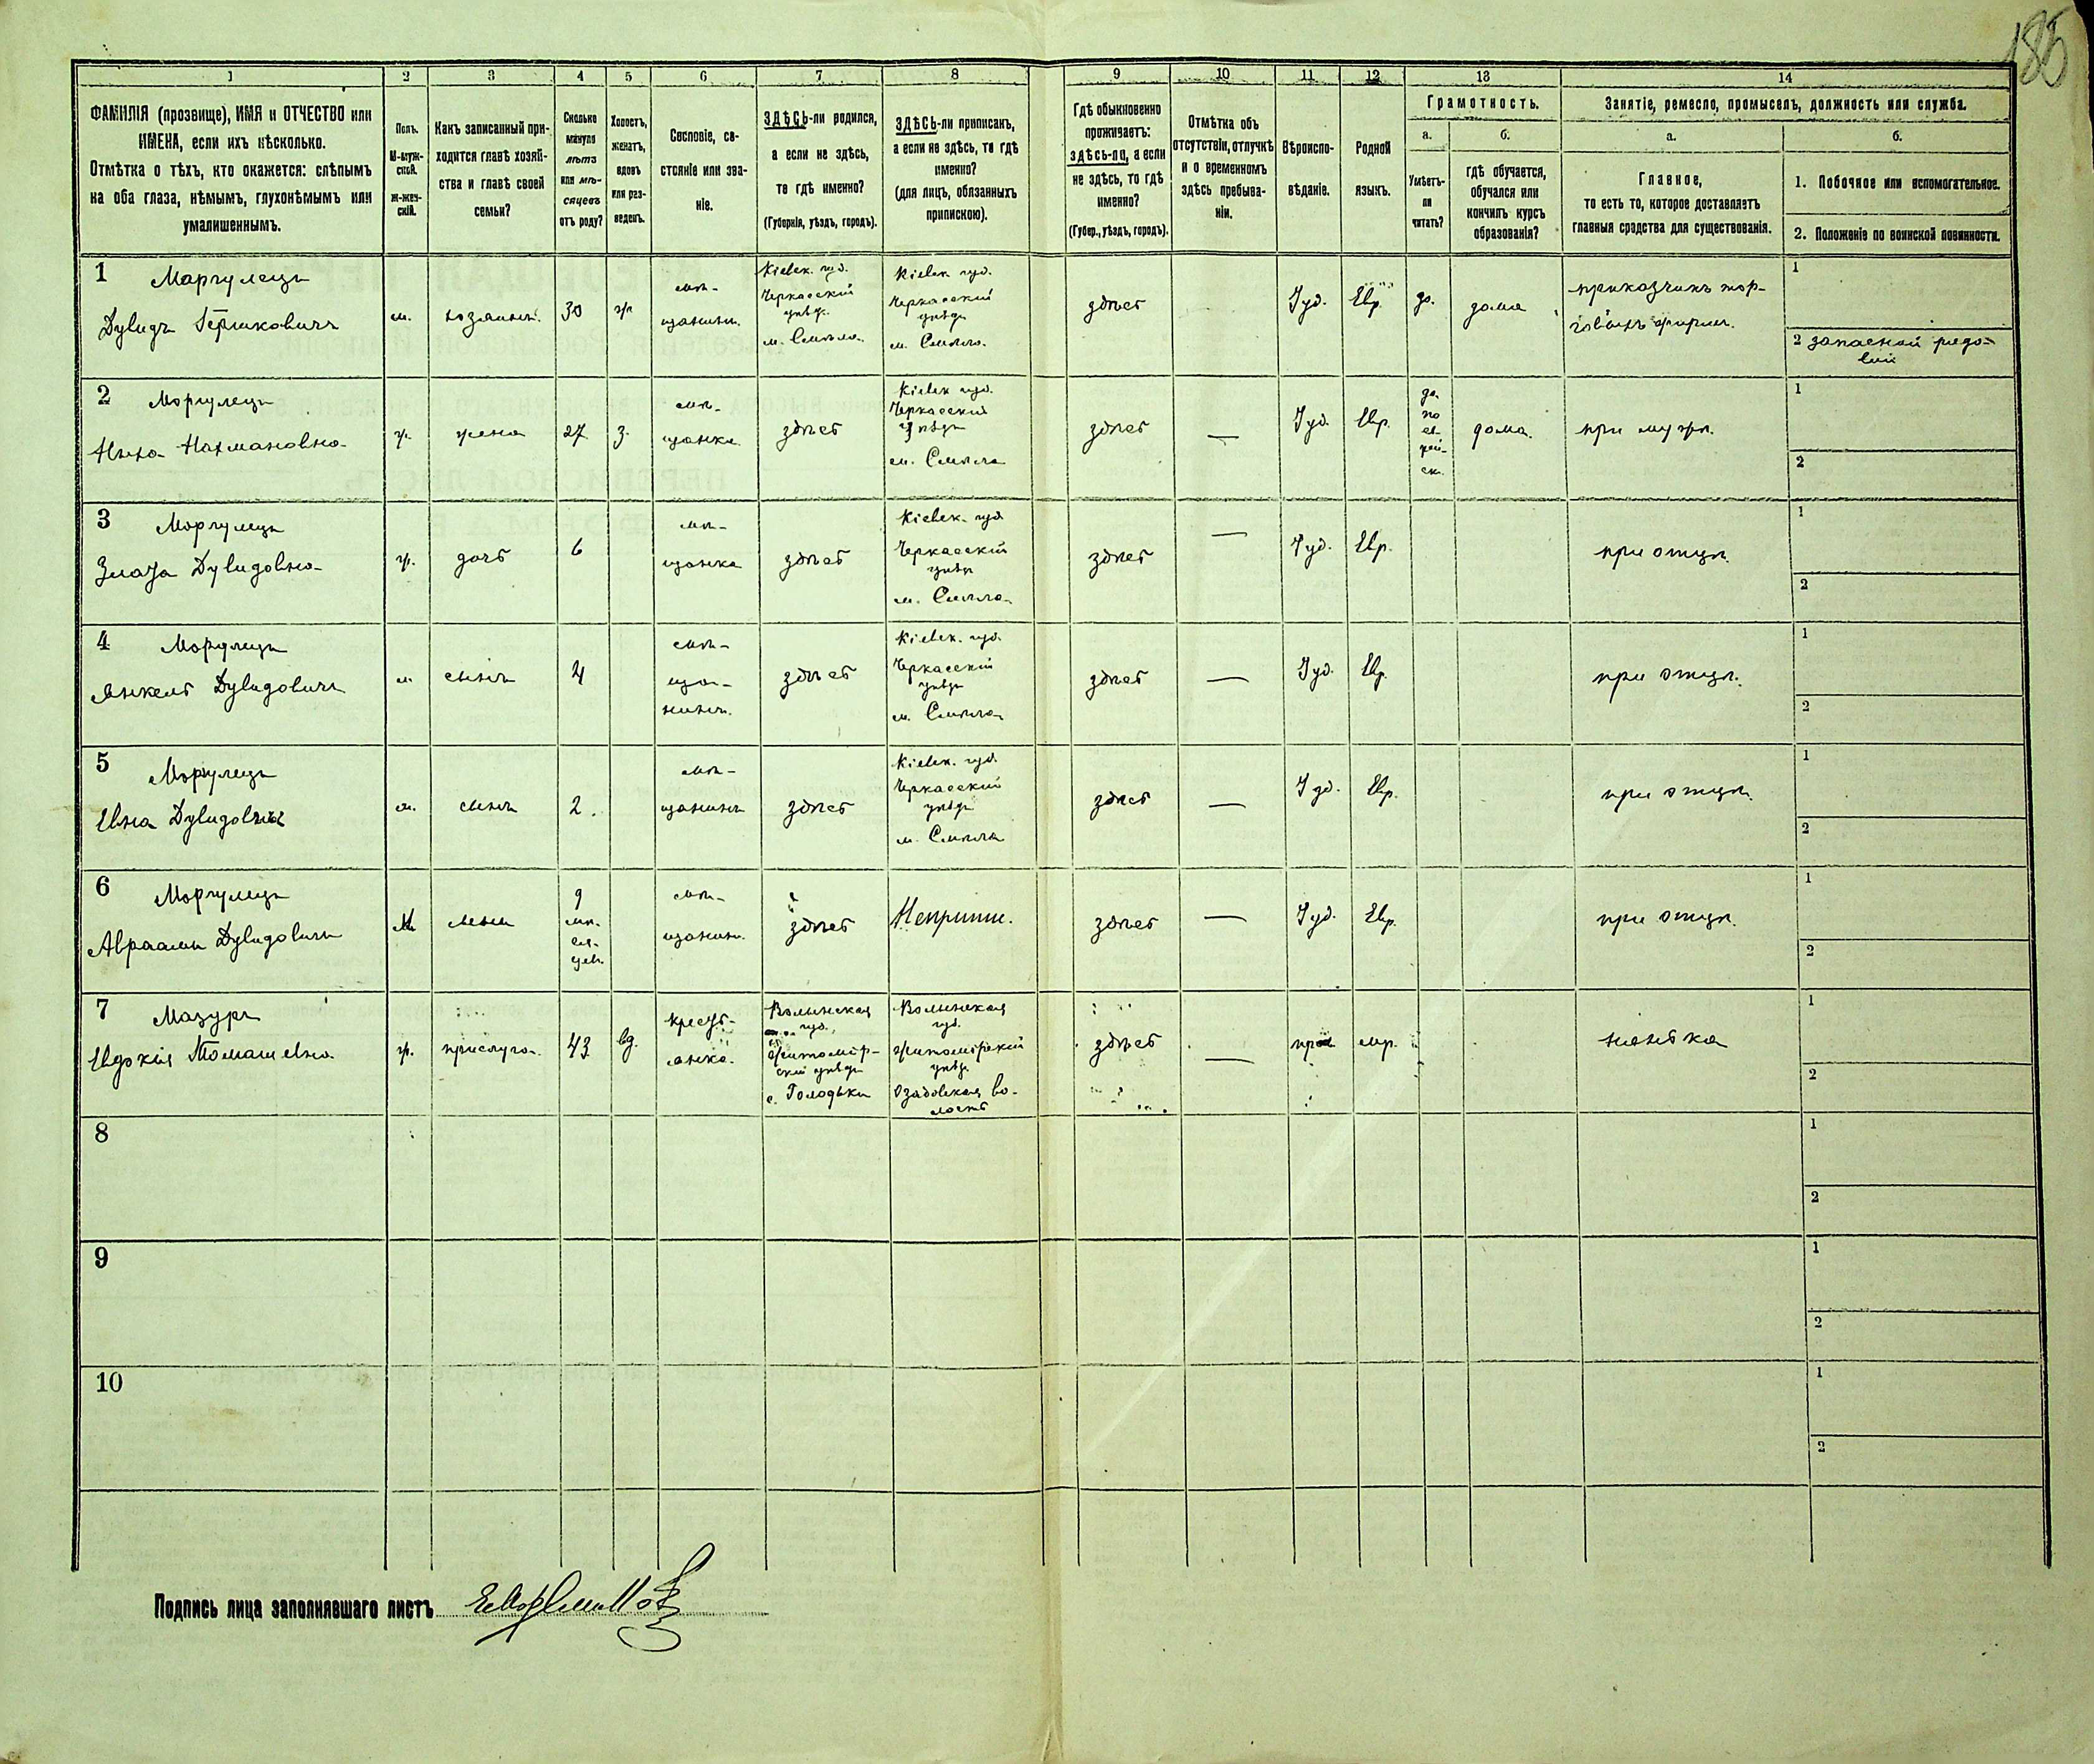 185
1 2 3 4 5 6 7 8 9 10 11 12 13 14
ФАМИЛІЯ (прозвище), ИМЯ и ОТЧЕСТВО или
ИМЕНА, если ихъ нѣсколько.
Отмѣтка о тѣхъ, кто окажется: слѣпымъ
на оба глаза, нѣмымъ, глухонѣмымъ или
умалишеннымъ.
Полъ.
М-муж-
ской.
Ж-жен-
скій.
Какъ записанный при-
ходится главѣ хозяй-
ства и главѣ своей
семьи?
Сколько
минуло
лѣтъ
или мѣ-
сяцевъ
отъ роду?
Холостъ,
женатъ,
вдовъ
или раз-
веденъ.
Сословіе, со-
стояніе или зва-
ніе.
ЗДѢСЬ-ли родился,
а если не здѣсь,
то гдѣ именно?
(Губернія, уѣздъ, городъ).
ЗДѢСЬ-ли приписанъ,
а если не здѣсь, то гдѣ
именно?
(для лицъ, обязанныхъ
припискою).
Гдѣ обыкновенно
проживаетъ:
здѣсь-ли, а если
не здѣсь, то гдѣ
именно?
(Губер., уѣздъ, городъ).
Отмѣтка объ
отсутствіи, отлучкѣ
и о временномъ
здѣсь пребыва-
ніи.
Вѣроиспо-
вѣданіе.
Родной
языкъ.
Грамотность.
а.
Умѣетъ-
ли
читать?
б.
гдѣ обучается,
обучался или
кончилъ курсъ
образованія?
Занятіе, ремесло, промыселъ, должность или служба.
а.
Главное,
то есть то, которое доставляетъ
главныя средства для существованія.
б.
1. Побочное или вспомогательное.
2. Положеніе по воинской повинности.
1 Маргулецъ
Дувидъ Гершковичъ
м.
хозяинъ.
30
ж
мѣ-
щанинъ.
Кіевск. губ.
Черкасскій
уѣзд.
м. Смѣла.
Кіевск. губ.
Черкасскій
уѣздъ
м. Смѣла.
здѣсь
Іуд.
Евр.
да.
дома
приказчикъ тор-
говыхъ фирмъ.
1
2 запасной рядо-
вой
2 Моргулецъ
Нахмановна
ж.
жена
27
з.
мѣ-
щанка
здѣсь
Кіевск губ.
Черкасскій
уѣздъ
м. Смѣла
здѣсь
—
Іуд.
Евр.
да.
по
ев-
рей-
ск.
дома.
при мужѣ.
1
2
3 Моргулецъ
Злата Дувидовна
ж.
дочь
6
мѣ-
щанка
здѣсь
Кіевск. губ
Черкасскій
уѣздъ
м. Смѣла
здѣсь
—
Іуд.
Евр.
при отцѣ.
1
2
4 Моргулецъ
Янкель Дувидовичъ
м
сынъ
4
мѣ-
ща-
нинъ.
здѣсь
Кіевск. губ.
Черкасскій
уѣздъ
м. Смѣла
здѣсь
—
Іуд.
Евр.
при отцѣ.
1
2
5 Моргулецъ
Дувидовичъ
м.
сынъ
2.
мѣ-
щанинъ
здѣсь
Кіевск. губ.
Черкасскій
уѣздъ
м. Смѣла
здѣсь
—
Іуд.
Евр.
при отцѣ.
1
2
6 Моргулецъ
Авраамъ Дувидовичъ
М
сынъ
9
мѣ-
ся-
цев.
мѣ-
щанин.
здѣсь
Неприпис.
здѣсь
—
Іуд.
Евр.
при отцѣ.
1
2
7 Мазуръ
Евдокія Томашевна
ж.
прислуга.
43
вд.
крест-
янка.
Волынская
губ.
Житомір-
скій уѣздъ
с. Голодьки
Волынская
губ.
Житомірскій
уѣздъ
во-
лость
здѣсь
—
пра
мр.
нянька
1
2
8
1
2
9
1
2
10
1
2
Подпись лица заполнявшаго листъ